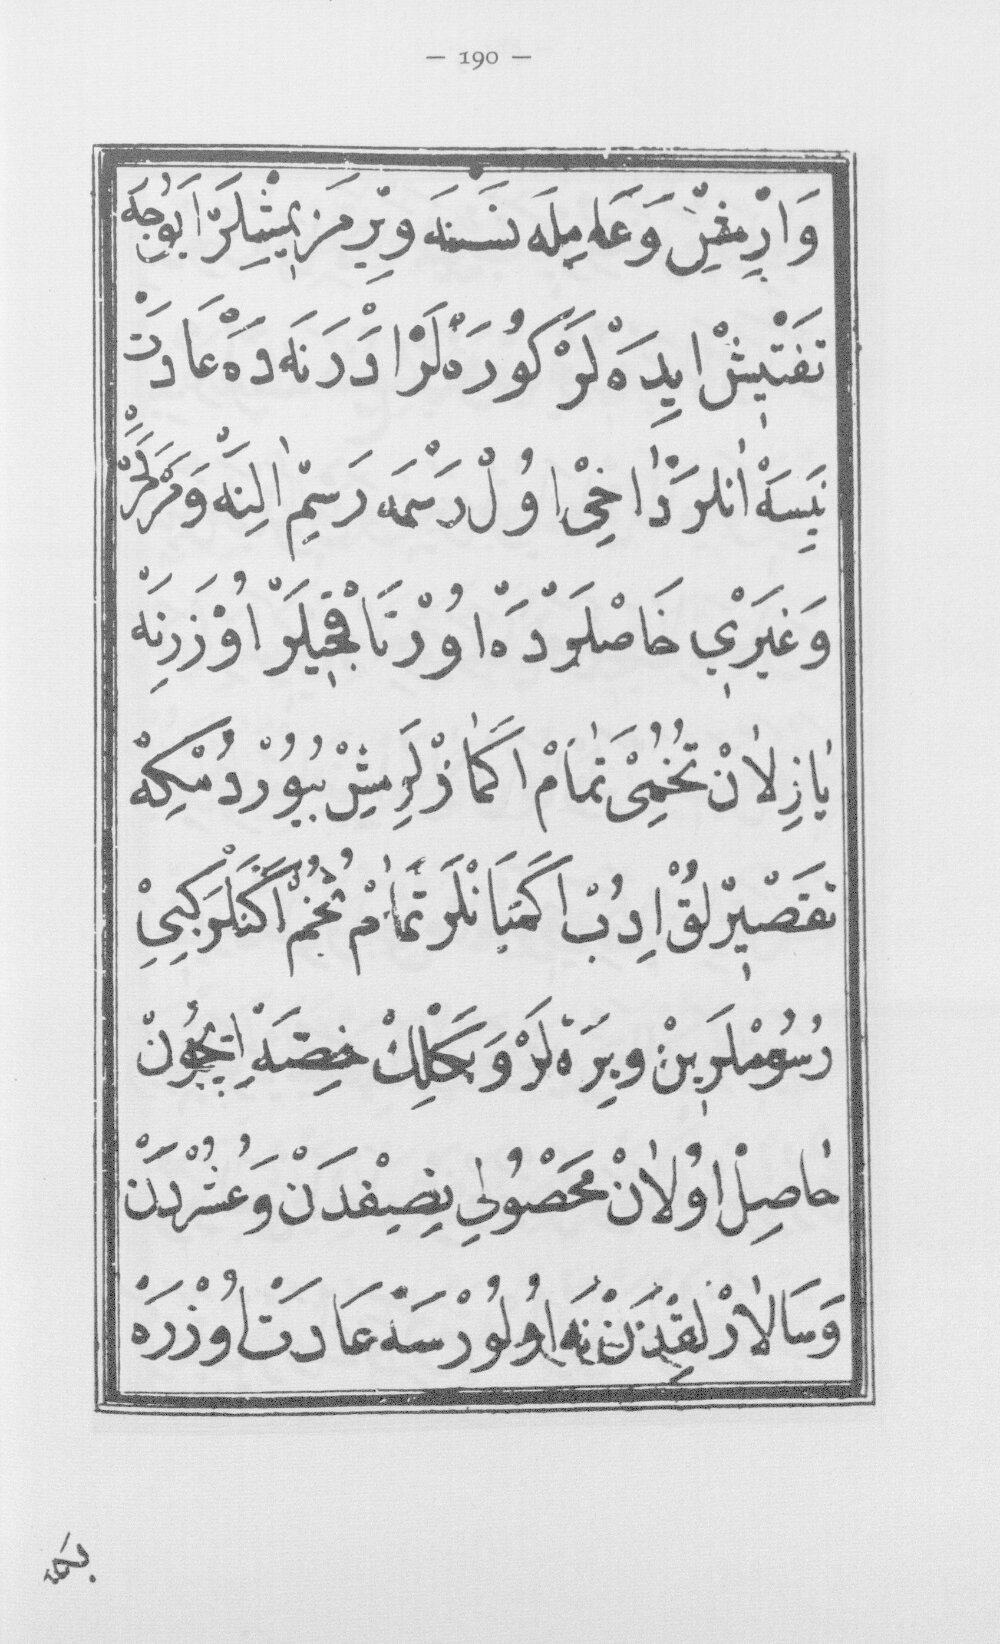 — 190 —
وَارِمِشِنْ وَعَامِلَه نَسْنَه وِيرْمَزِيمِشْلَرْ اَبُوجَه
تَفْتِيشْ اِيدَه لَرْ كُورَه لَرْ اَوْرَنَه دَه عَادَتْ
نَيْسَه اٰنْلَرْ دٰاخِى اُولْ رَسْمَه رَسِمْ اٰلِنَه وَ
وَغَيْرِي خَاصْلَرْدَه اُورْتَاقْجِيلَرْ اُوزَرِنَه
يٰازِلٰانْ تُخُمِىْ تَمٰامْ اَكْمَازْلَرِمِشْ بُيُوُرْدُمْكِه
تَقْصِيرْلُقْ اِدُبْ اَكْمَيَانْلَرْ تَمٰامْ تُخُمْ اَكَنْلَرْ كِبِيْ
رُسُومْلَرِينْ وِيرَه لَرْ وَبَكْلِكْ حِصَّه اِيچُونْ
حٰاصِلْ اوُلٰانْ مَحْصُولِي نِصِفْدَنْ وَعُشُرْدَنْ
وَسَالٰارْلِقْدَنْ نَه اوُلُورْسَه عَادَتْ اُوزْرَه